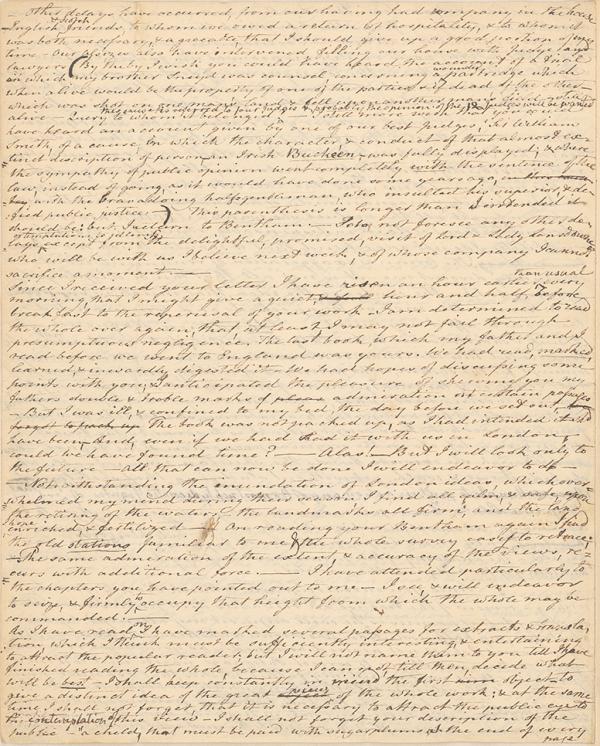 Other delays have occurred, from our having had company in the house
English & Irish friends, to whom we owed a return of hospitality, & to whom it
was both necessary, & agreeable, that I should give up a good portion of my
time — Our assizes also have intervened, filling our house with Judges and
lawyers. (By the by I wish you could have heard, the account of a trial
on which my brother Sneyd was counsel, concerning a partridge which
when alive would be the property of one of the parties & if dead of the other —
which was shot
alive
have heard an account given by one of our best judges, Sir William
Smith, of a cause, in which the character & conduct of that almost ex-
tinct description of person an Irish Buckeen was fully displayed; & where
the sympathy of public opinion went completely with the sentence of the
law, instead of going, as it would have done some years ago,
with the bravadoing halfgentleman, who insulted his superior, & de-
fied public justice) This parenthesis is longer than I intended it
should be; but I return to Bentham — I do not foresee any other de-
lays except from the delightful, promised, visit of Lord & Lady Lansdowne
who will be with us I believe next week & of whose company I cannot
sacrifice a moment. —
Since I received your letter I have risen an hour earlier than usual every
morning that I might give a quiet hour and half, before
breakfast to the reperusal of your work. I am determined to read
the whole over again, that at least I may not fail through
presumptuous negligence. The last book which my father and I
read before we went to England was yours. We had read, marked,
learned, & inwardly digested it — We have hopes of discussing some
points with you, & anticipated the pleasure, of shewing you my
fathers double & treble marks of admiration at certain passages
— But I was ill, & confined to my bed, the day before we set out,
forgot to pack up The book was not packed up, as I had intended it should
have been — And, even if we had had it with us in London,
could we have found time? — Alas! — But I will look only to
the future — all that can now be done I will endeavor to do —
— Notwithstanding the inundation of London ideas, which over-
whelmed me, most happily for the time, I find all calm, & safe, upon
the retiring of the waters — the landmarks all firm; and the land
enriched, & fertilized — On reading your Bentham again I find
the old stations familiar to me & the whole survey easy to retrace.
— The same admiration of the extent, & accuracy of the views, re-
curs with additional force — I have attended particularly to
the chapters you have pointed out to me — I see, & will endeavor
to seize, & firmly to occupy that height from which the whole may be
commanded. —
As I have read on, I have marked several passages for extracts & transla-
tion, which I think must be sufficiently interesting & entertaining
to attract the popular reader, but I will not name them to you till I have
finished reading the whole because I cannot till then, decide what
will be best — I shall keep constantly in view the first object to
give a distinct idea of the great views of the whole work; & at the same
time I shall not forget, that it is necessary to attract the public eye to
the contemplation of this view — I shall not forget your description of the
public "a child, that must be paid with sugarplums at the end of every
page